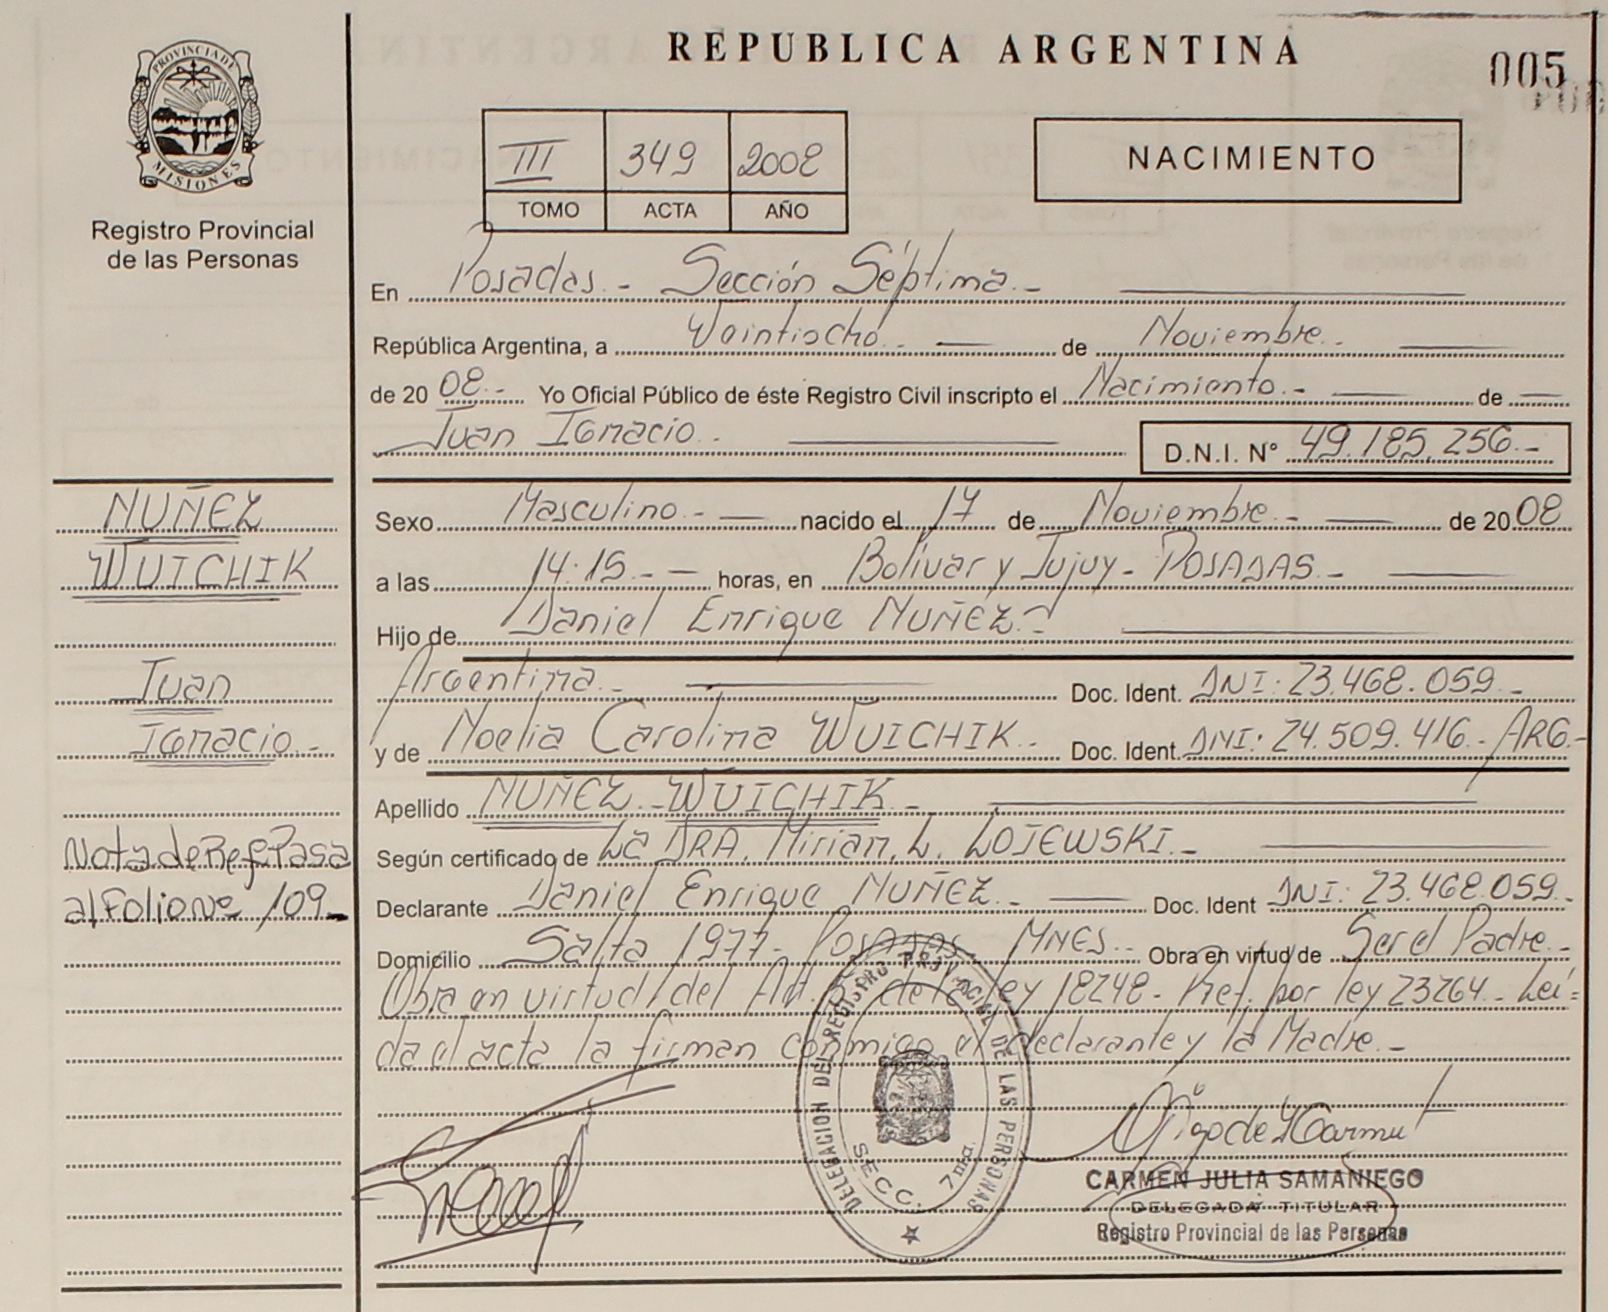 REPUBLICA ARGENTINA
005
PROVINCIA DE
MISIONES
Registro Provincial
de las Personas
III 349 2008
TOMO ACTA AÑO
NACIMIENTO
En Posadas.- Sección Séptima.-
República Argentina, a Veintiocho.- de Noviembre.-
de 20 08.- Yo Oficial Público de éste Registro Civil inscripto el Nacimiento.- de
Juan Ignacio.
D.N.I. N° 49.185.256.-
NUÑEZ
WUICHIK
Juan
Ignacio.-
Nota de Ref. Pasa
al Folio Nº 109-
Sexo Masculino.- nacido el 17 de Noviembre.- de 20 08
a las 14.15.- horas, en Bolívar y Jujuy- POSADAS.-
Hijo de Daniel Enrique NUÑEZ.-
Argentina.- Doc. Ident. DNI: 23.468.059.-
y de Noelia Carolina WUICHIK.- Doc. Ident. DNI: 24.509.416.- ARG.-
Apellido NUÑEZ - WUICHIK.-
Según certificado de La DRA. Mirian. L. LOJEWSKI.-
Declarante Daniel Enrique NUÑEZ.- Doc. Ident DNI: 23.468.059.-
Domicilio Salta 1977- POSADAS- MNES.- Obra en virtud de Ser el Padre.-
Obra en virtud del Art. de la Ley 18248- Ref. por ley 23264.- Leí=
da el acta la firman conmigo el declarante y la Madre.-
DELEGACION DEL REGISTRO PROVINCIAL DE LAS PERSONAS
SECC. 7ma.
CARMEN JULIA SAMANIEGO
DELEGADA TITULAR
Registro Provincial de las Personas